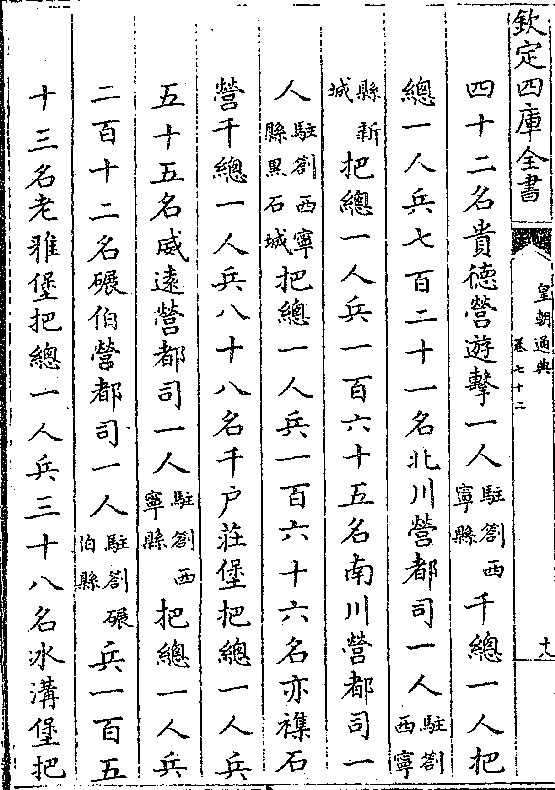 欽定四庫全書
皇朝通典
卷七十二
十九
四十二名貴德營遊擊一人駐劄西寧縣千總一人把
總一人兵七百二十一名北川營都司一人駐劄西寧
縣新城把總一人兵一百六十五名南川營都司一
人駐劄西寧縣黑石城把總一人兵一百六十六名亦襍石
營千總一人兵八十八名千户莊堡把總一人兵
五十五名威遠營都司一人駐劄西寧縣把總一人兵
二百十二名碾伯營都司一人駐劄碾伯縣兵一百五
十三名老雅堡把總一人兵三十八名冰溝堡把